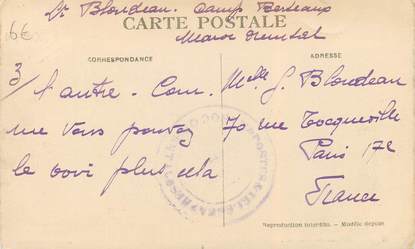 Blondeau. Camp Berteaux
CARTE POSTALE
Maroc oriental
6€
CORRESPONDANCE
ADRESSE
3/ l'autre. Com
me vous pouvez
le voir plus cela
Melle G. Blondeau
70 rue Tocqueville
Paris 17e
France
Reproduction interdite. — Modèle déposé